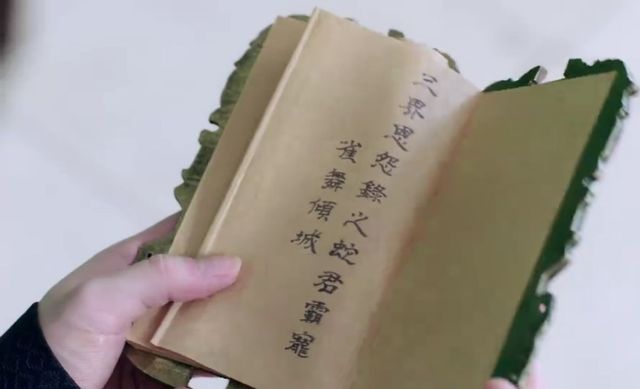 三界恩怨錄之蛇君霸寵
雀舞傾城